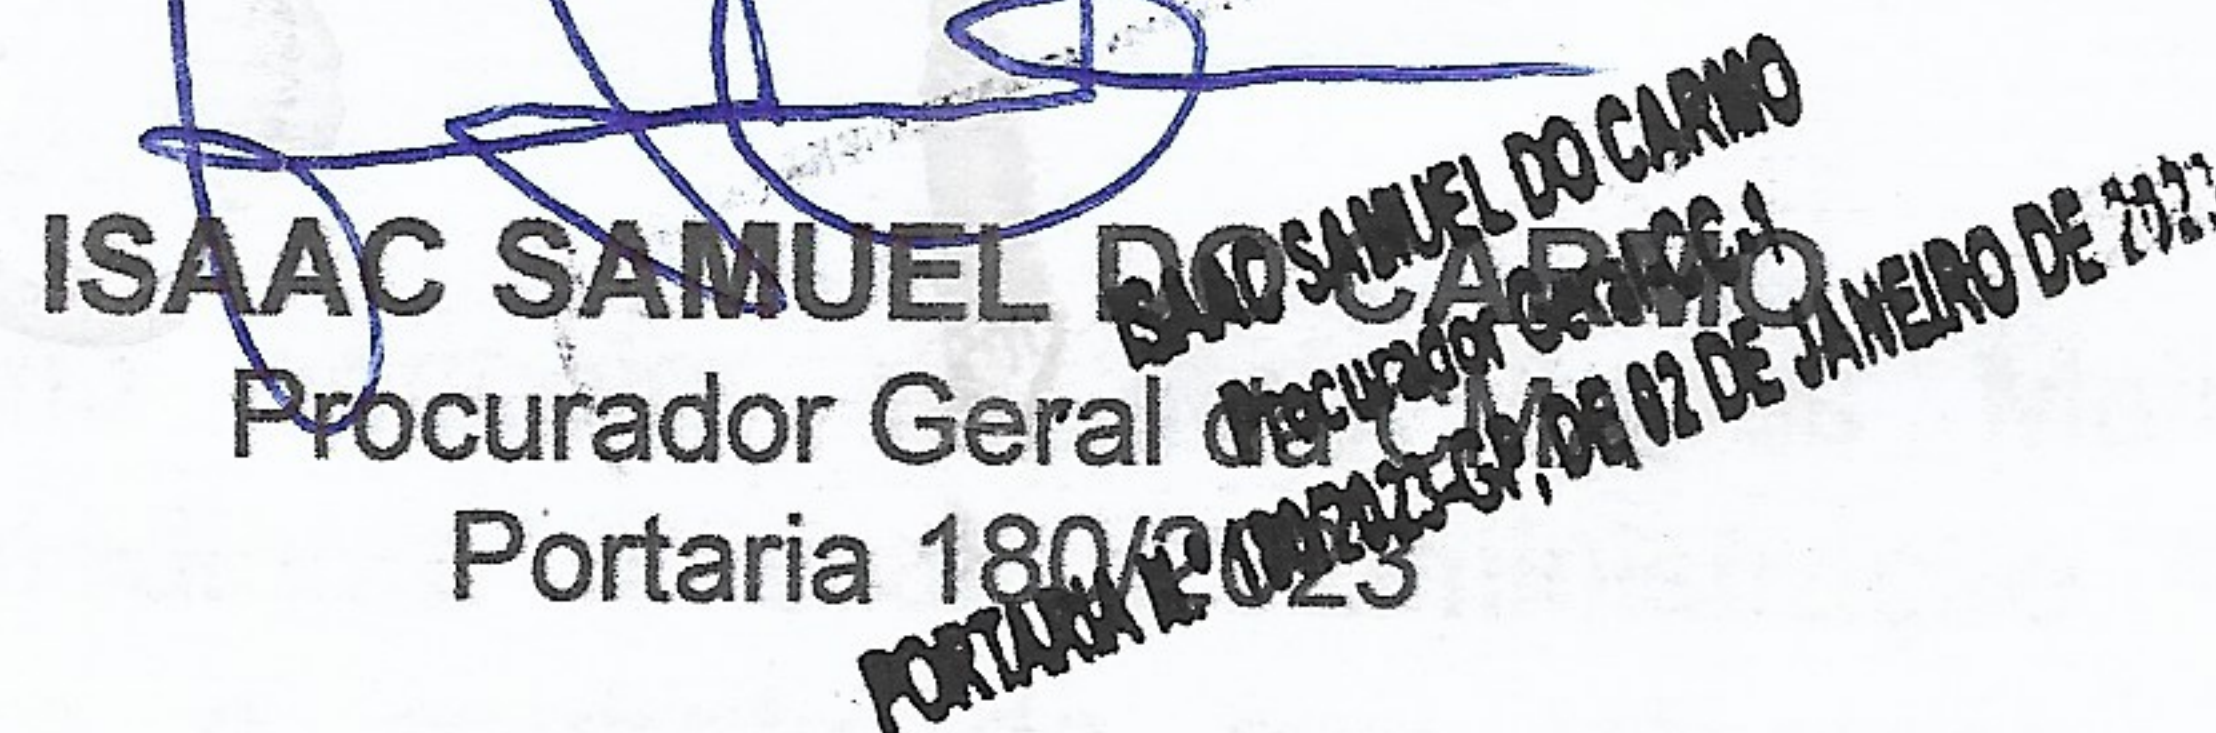 ISAAC SAMUEL DO CARMO
Procurador Geral da
Portaria 180/2023
ISAAC SAMUEL DO CARMO
Procurador Geral-CC.1
PORTARIA Nº 180/2023-GP, DE 02 DE JANEIRO DE 2023